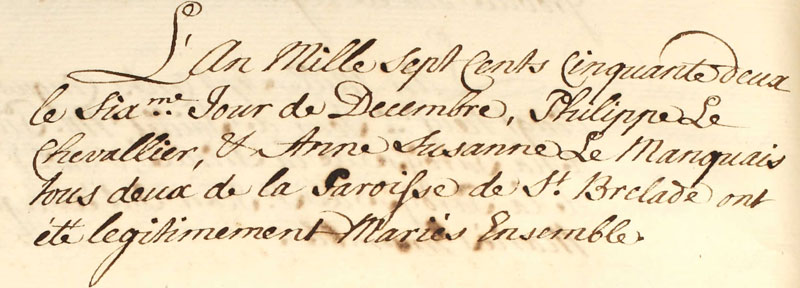 L'An Mille sept Cents Cinquante deux
le Six.me Jour de Decembre, Philippe Le
Chevallier, & Anne Susanne Le Manquais
tous deux de la Paroisse de St. Brelade ont
été legitimement Mariés Ensemble.